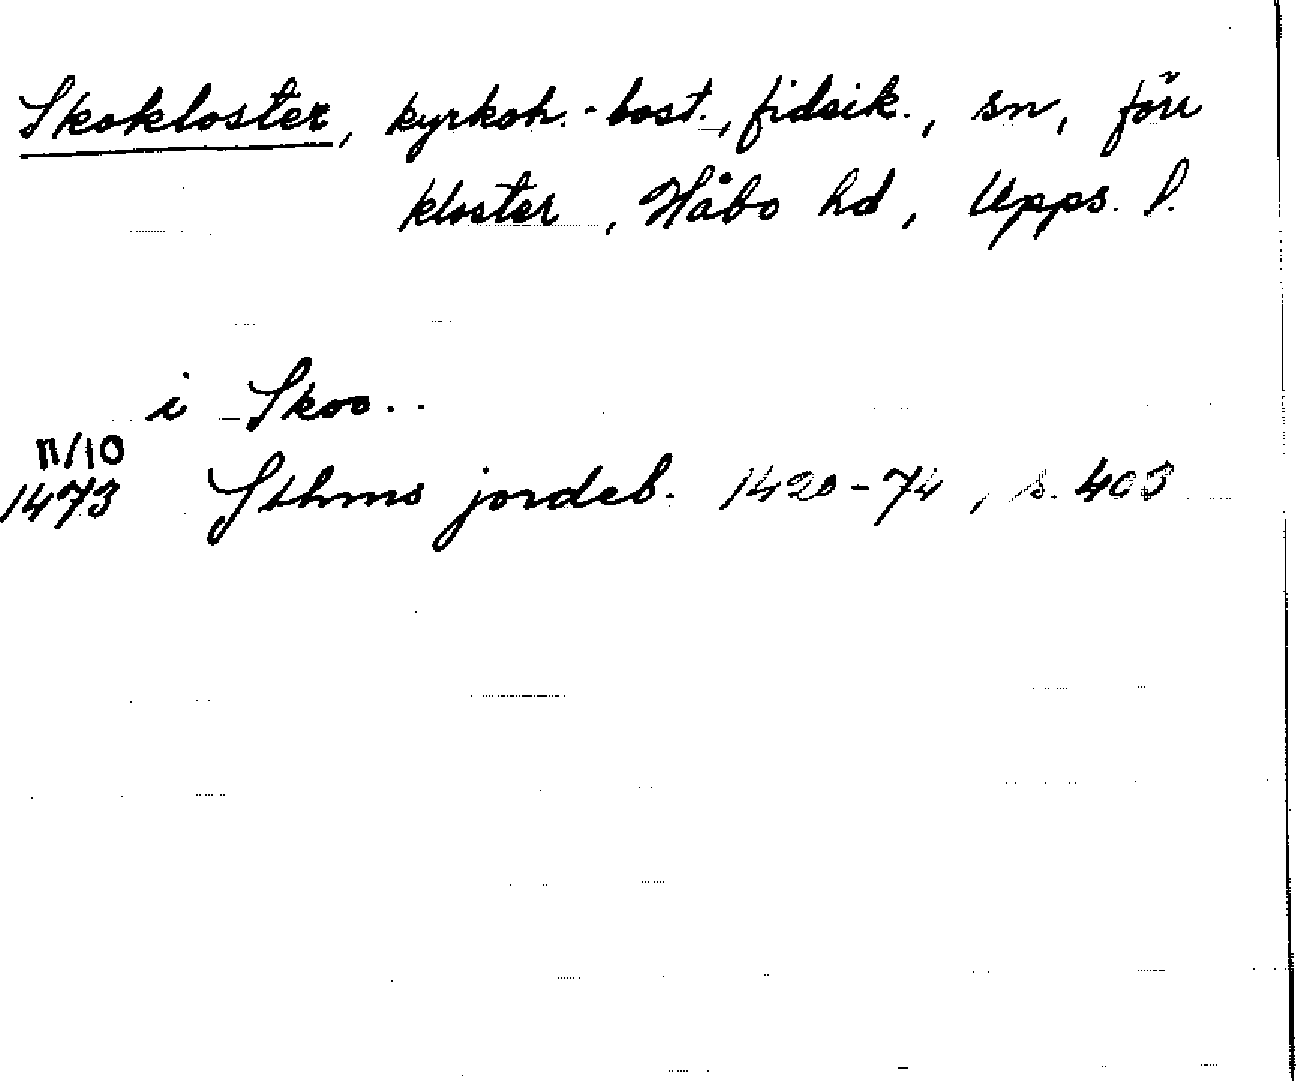 Skokloster, kyrkoh.-bost., fideik., sn, förr
kloster, Håbo hd, Upps. l.
i Skoo..
11/10
1473 Sthms jordeb. 1420-74, s. 403